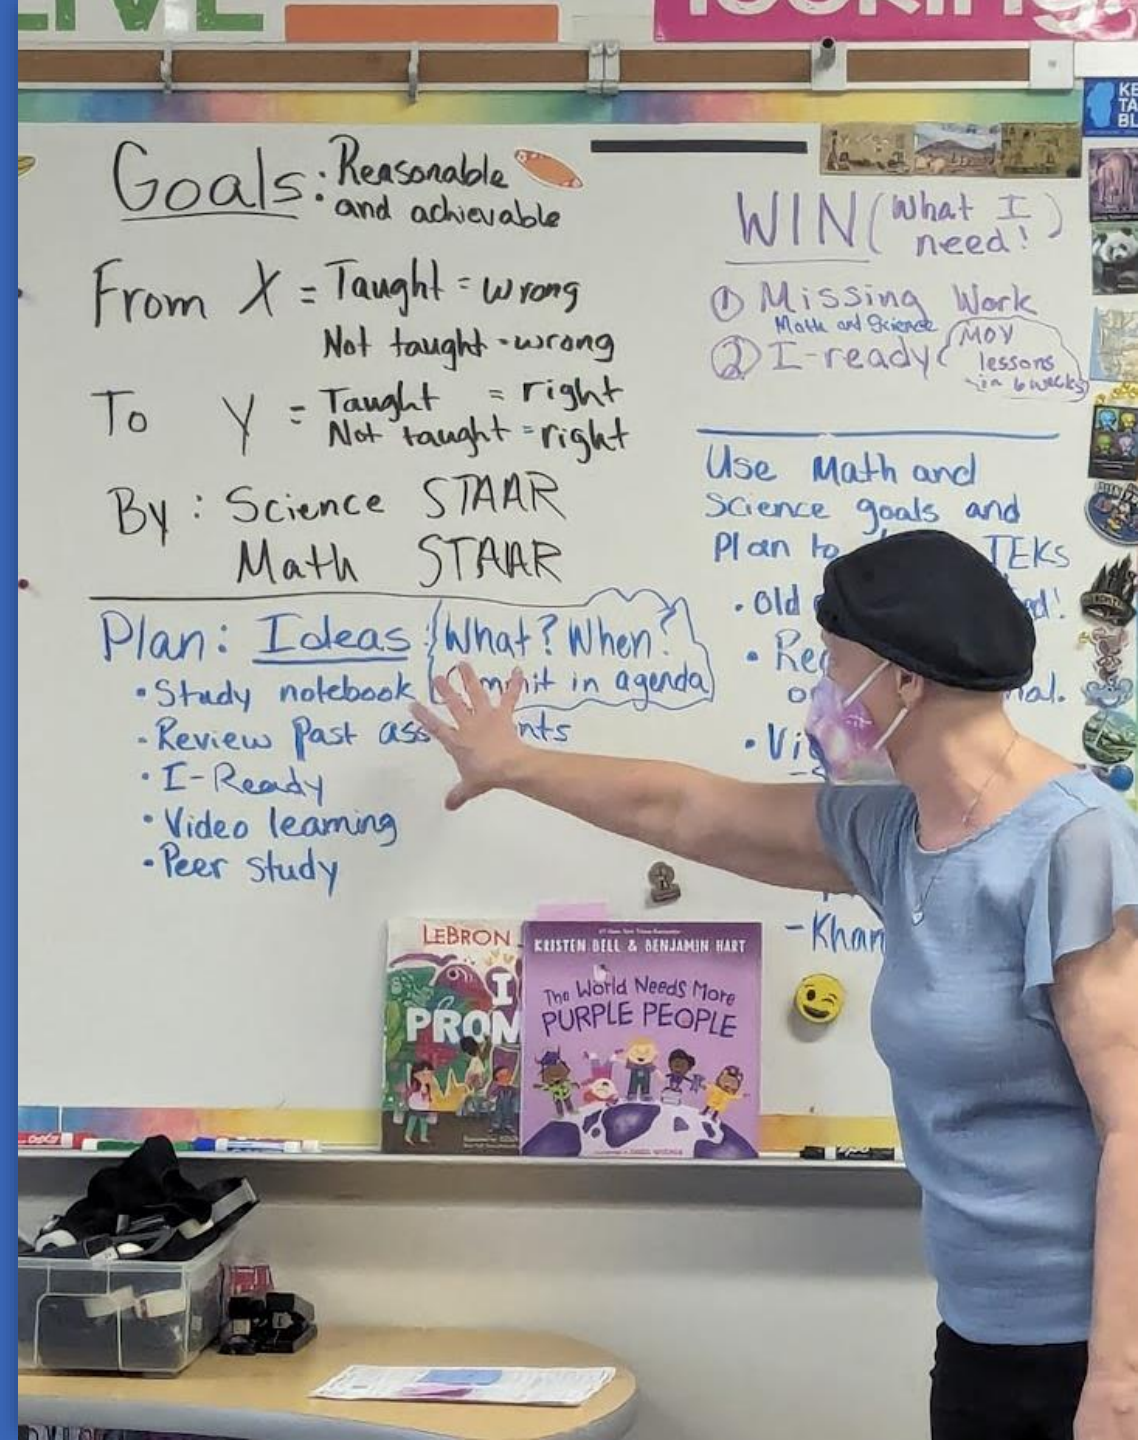 LIVE
Goals: Reasonable
and achievable
From X = Taught = wrong
Not taught = wrong
To Y = Taught = right
Not taught = right
By: Science STAAR
Math STAAR
Plan: Ideas: What? When?
in agenda
• Study notebook
• Review Past
• I-Ready
• Video learning
• Peer study
WIN (What I
need!)
① Missing Work
Math and Science
② I-ready (MOY
lessons
in 6 weeks)
Use Math and
Science goals and
Plan to TEKs
• Old
LEBRON
I
KRISTEN BELL & BENJAMIN HART
The World Needs More
PURPLE PEOPLE